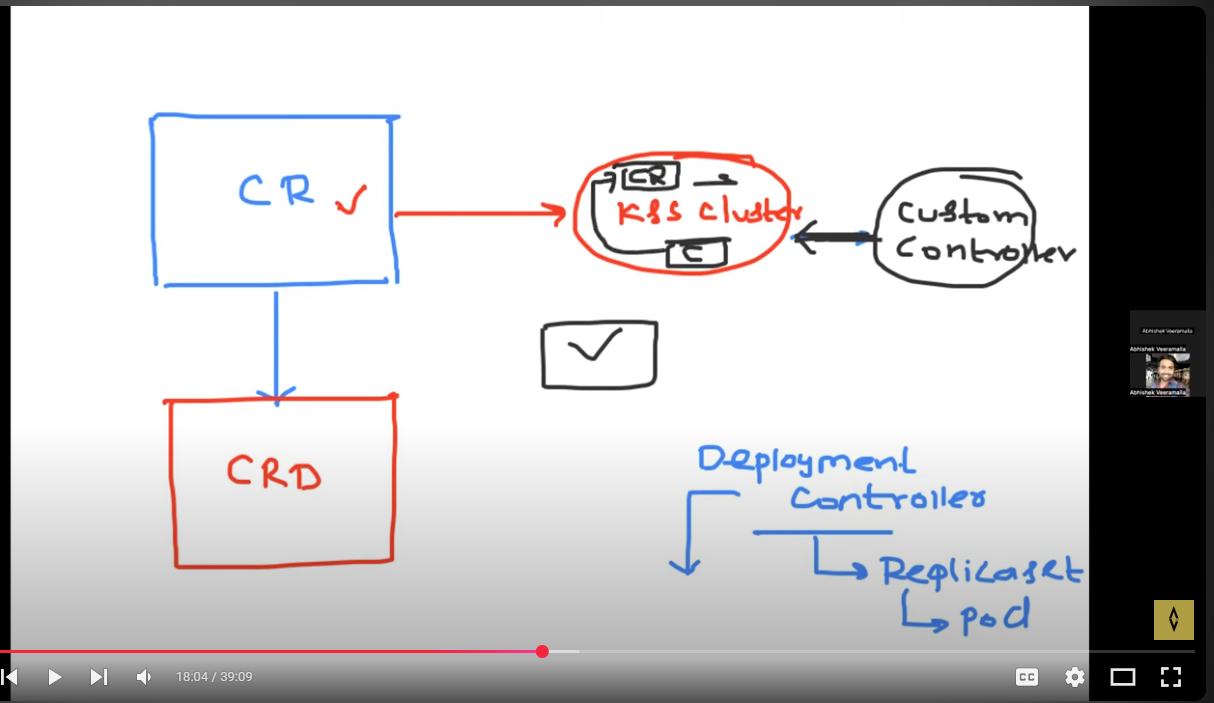 CR
CR
K8S Cluster
C
Custom
Controller
CRD
Deployment
Controller
Replicaset
pod
Abhishek Veeramalla
Abhishek Veeramalla
Abhishek Veeramalla
18:04 / 39:09
CC